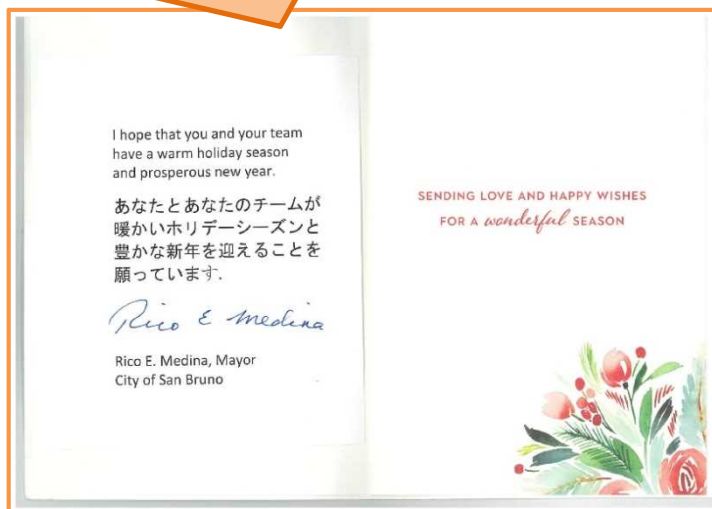 I hope that you and your team
have a warm holiday season
and prosperous new year.
あなたとあなたのチームが
暖かいホリデーシーズンと
豊かな新年を迎えることを
願っています.
Rico E Medina
Rico E. Medina, Mayor
City of San Bruno
SENDING LOVE AND HAPPY WISHES
FOR A wonderful SEASON